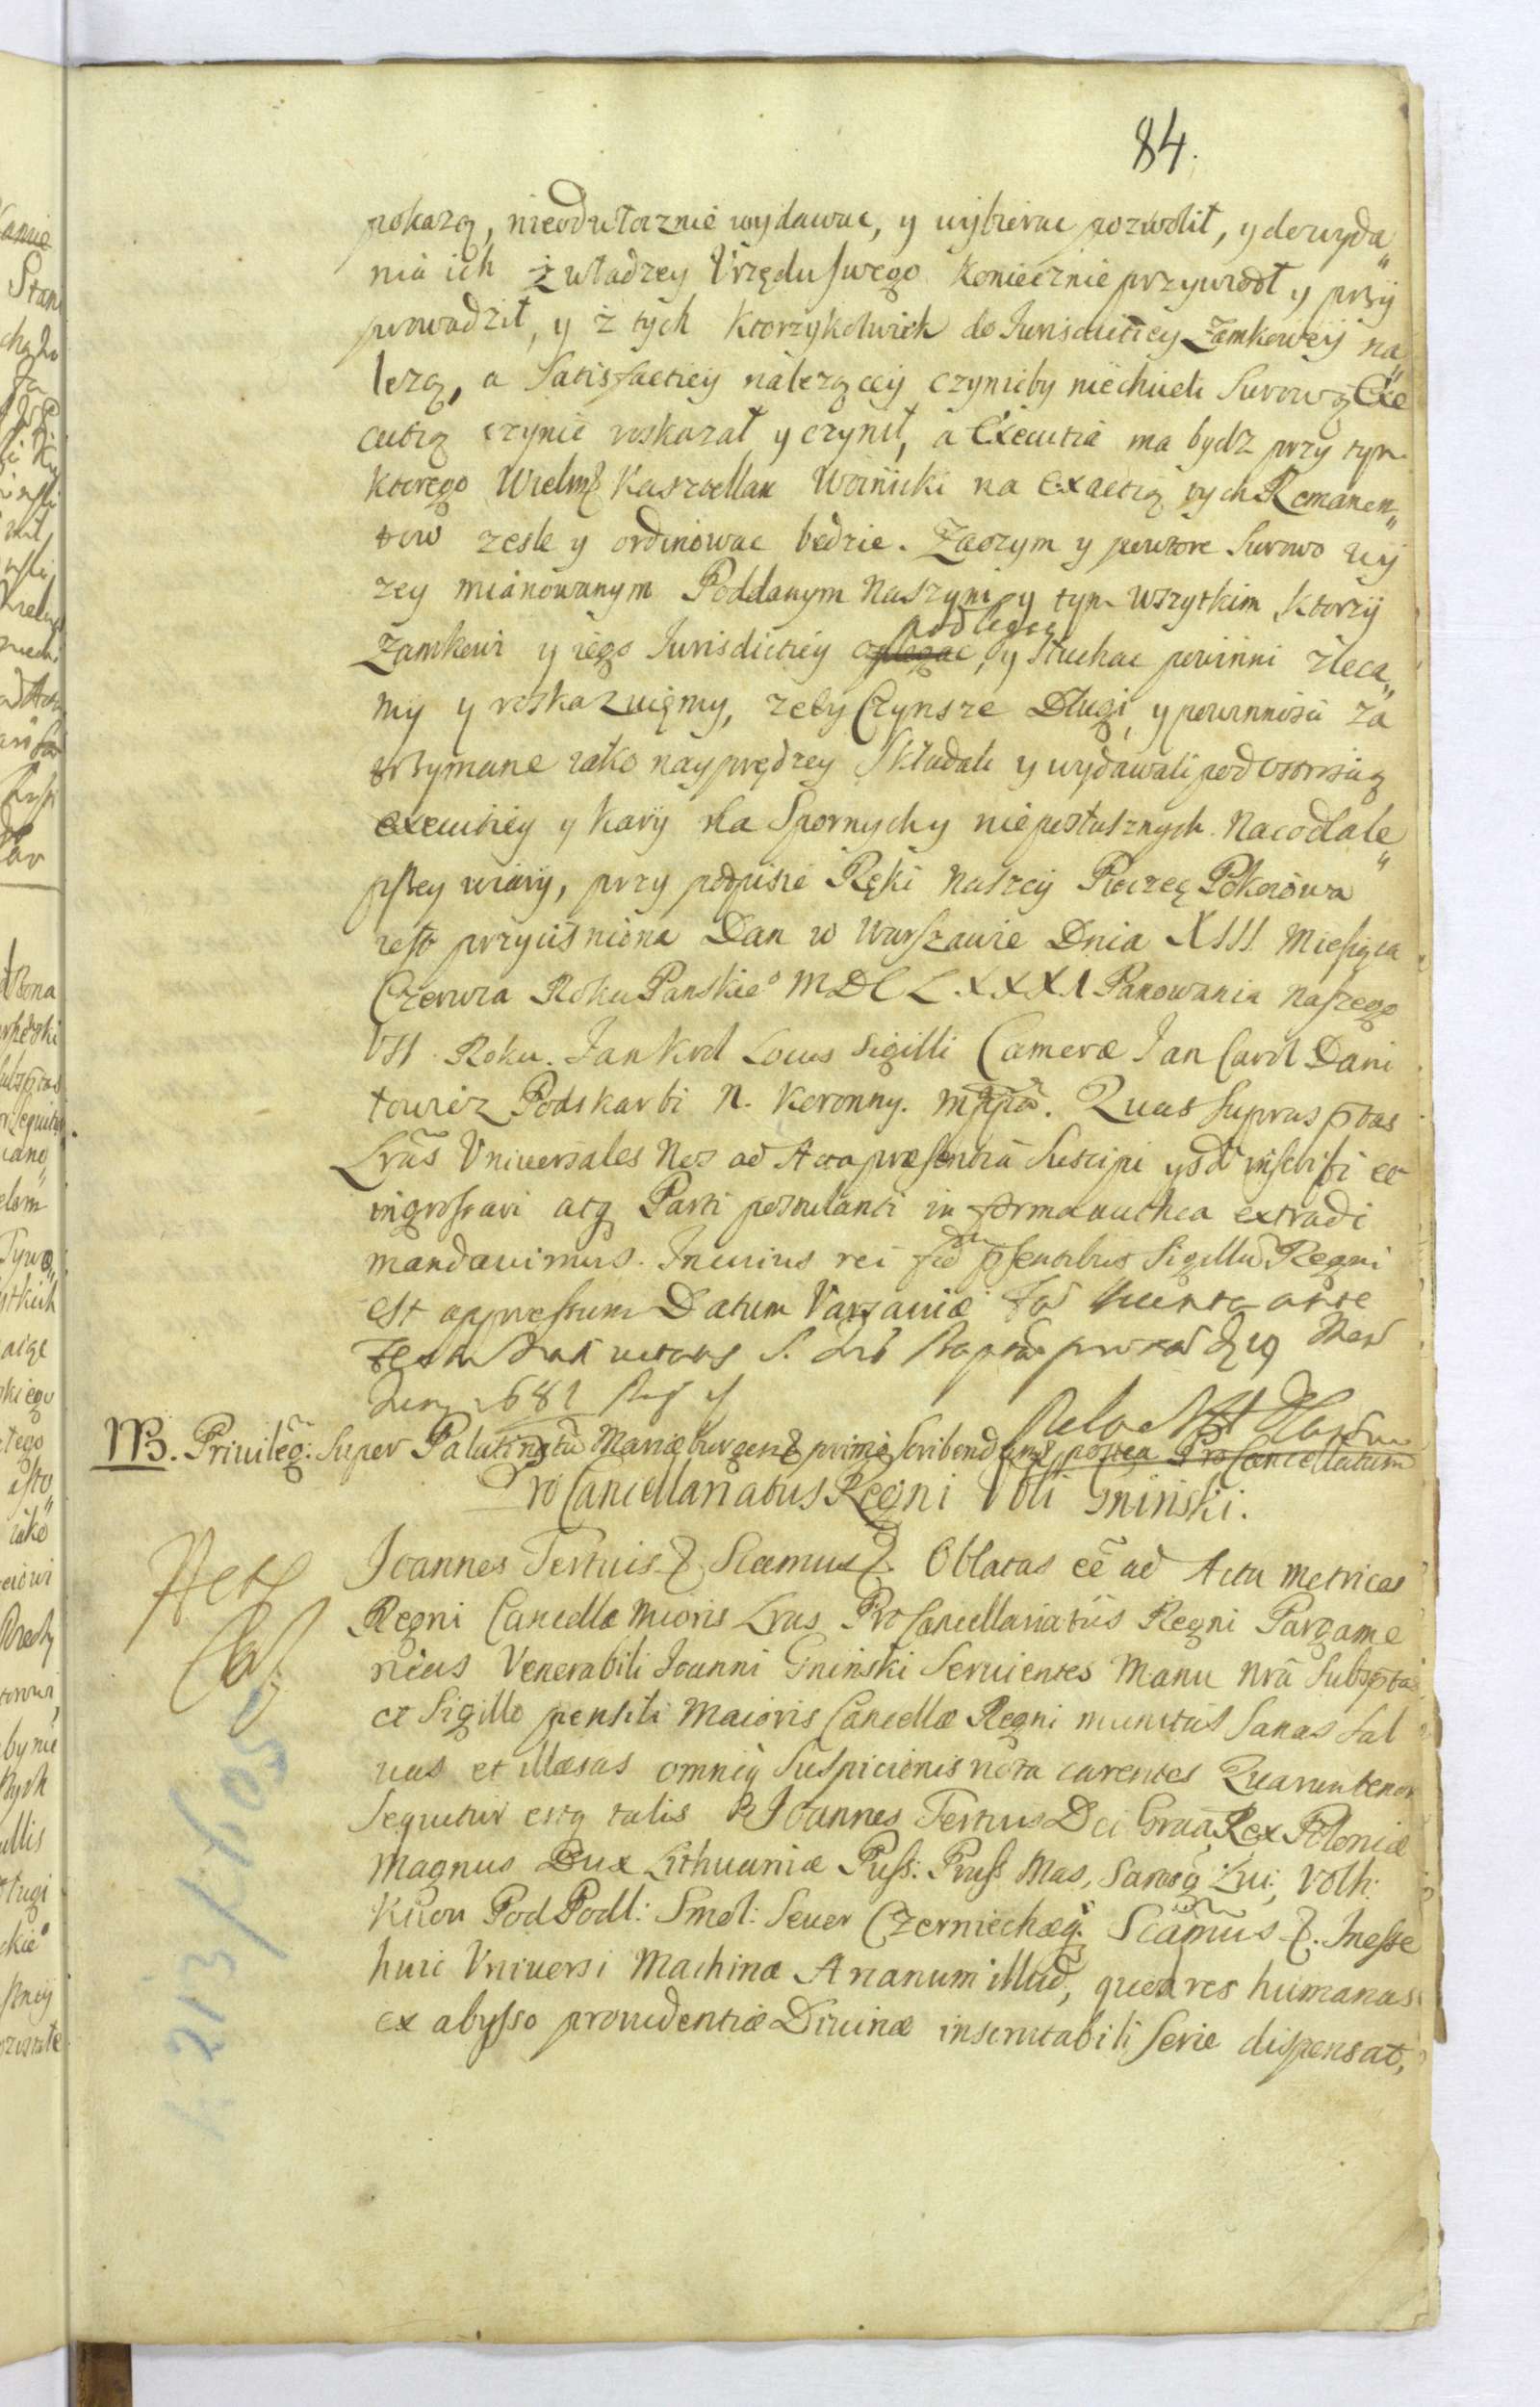 84.
pokazą, nieodwłocznie wydawac, y wybierac pozwolił, y do wyda„
nia ich z władzey Vrzędu swego koniecznie przywiodł y przÿ
prowadził, y z tych ktorzykolwiek do Jurisdictiey Zamkoweÿ na„
lezą, a Satisfactiey nalezącey czynicby niechcieli Surową Exe
cutią czynic roskazał y czynił, a Executia ma bydz przy tym
ktorego Wielmz Kasztellan Woinicki na Exactią tych Remanen„
tow zesle y ordinowac będzie. Zaczym y powtore Surowo wÿ
zey mianowanym Poddanym Naszym y tym wszytkim ktorzÿ
Zamkowi y iego Jurisdictiey podlegac, y Słuchac powinni zleca„
my y roskazuięmy, zeby Czynsze Długi, y powinnosci za
trzymane iako nayprędzey Składali y wydawali pod ostroscią
executiey y karÿ na Spornych y nieposłusznych. Na co dla le„
pszey wiarÿ, przy podpisie Ręki Naszeÿ Pieczęc Pokoiowa
iest przycisniona Dan w Warszawie Dnia XIII Miesiąca
Czerwca Roku Panskie⁰ MDCLXXXI Panowania Naszego
VII Roku. Jan Krol Locus Sigilli Cameræ Jan Carol Dani
łowicz Podskarbi N. Koronny. mppa. Quas Supraspτas
Lrãs Vniuersales Nos ad Acta præsentia Suscipi ysđ inscribi et
ingrossari atq Parti postulanti in forma authca extradi
mandauimus. In cuius rei fid p̄sentibus Sigillũ Regni
est appressum Datum Varzauiæ
Juny 1681
NB. Priuileg: Super Palatinatũ Mariæburgens primò Scribend postea ProCancellatum
ProCancellariatus Regni Gninski.
Joannes Tertuis Scamus. Oblatas eē ad Acta Metrices
Regni Cancellæ Mioris Lras ProCancellariatûs Regni Pargame
neas Venerabili Joanni Gninski Seruientes Manu nrã Subsptas
et Sigillo pensili Maioris Cancellæ Regni munitas Sanas Sal
uas et illæsas omniq Suspicionis nota carentes Quarum tenor
Sequitur estq talis Joannes Tertius Dei Graã Rex Poloniæ
Magnus Dux Lithuaniæ Russ: Pruss Mas, Samog Liu: Volh:
Kÿou Pod Podl: Smol: Seuer Czerniechoq. Scãmus. Inesse
huic Vniuersi Machinæ Arcanum illud, quod res humanas
ex abysso prouidentiæ Diuinæ inscrutabili Serie dispensat,